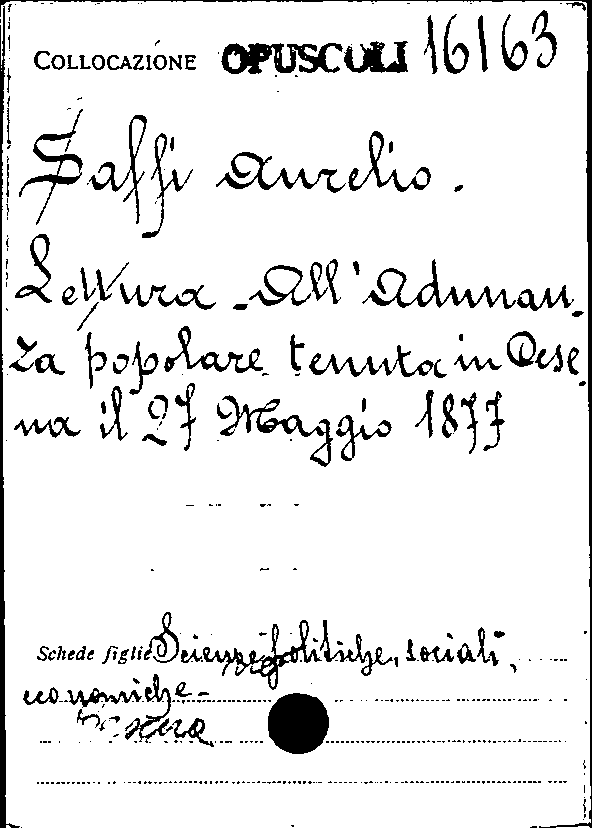 COLLOCAZIONE OPUSCOLI 16163
Saffi Aurelio.
Lettura - All'Adunan-
za popolare tenuta in Cese-
na il 27 Maggio 1877
Schede figlie Scienze politiche, sociali,
economiche -